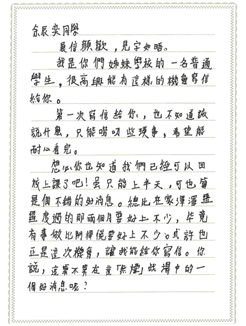 余長安同學
展信顏歡，見字如晤。
我是你們姊妹學校的一名普通
學生，很高興能有這樣的機會寫信
給你。
第一次寫信給你，也不知道該
說什麼，只能嘮叨些瑣事，希望能
耐心看完。
想必你也知道我們已經可以回
校上課了吧！虽只能上半天，可也算
是個不錯的好消息。總比在家渾渾
噩噩度過的那兩個月要好上不少，畢竟
有事做比閑得慌要好上不少。或許也
正是這次機會，讓我能給你寫信。你
說，這算不算在這戰場中的一
個好消息呢？